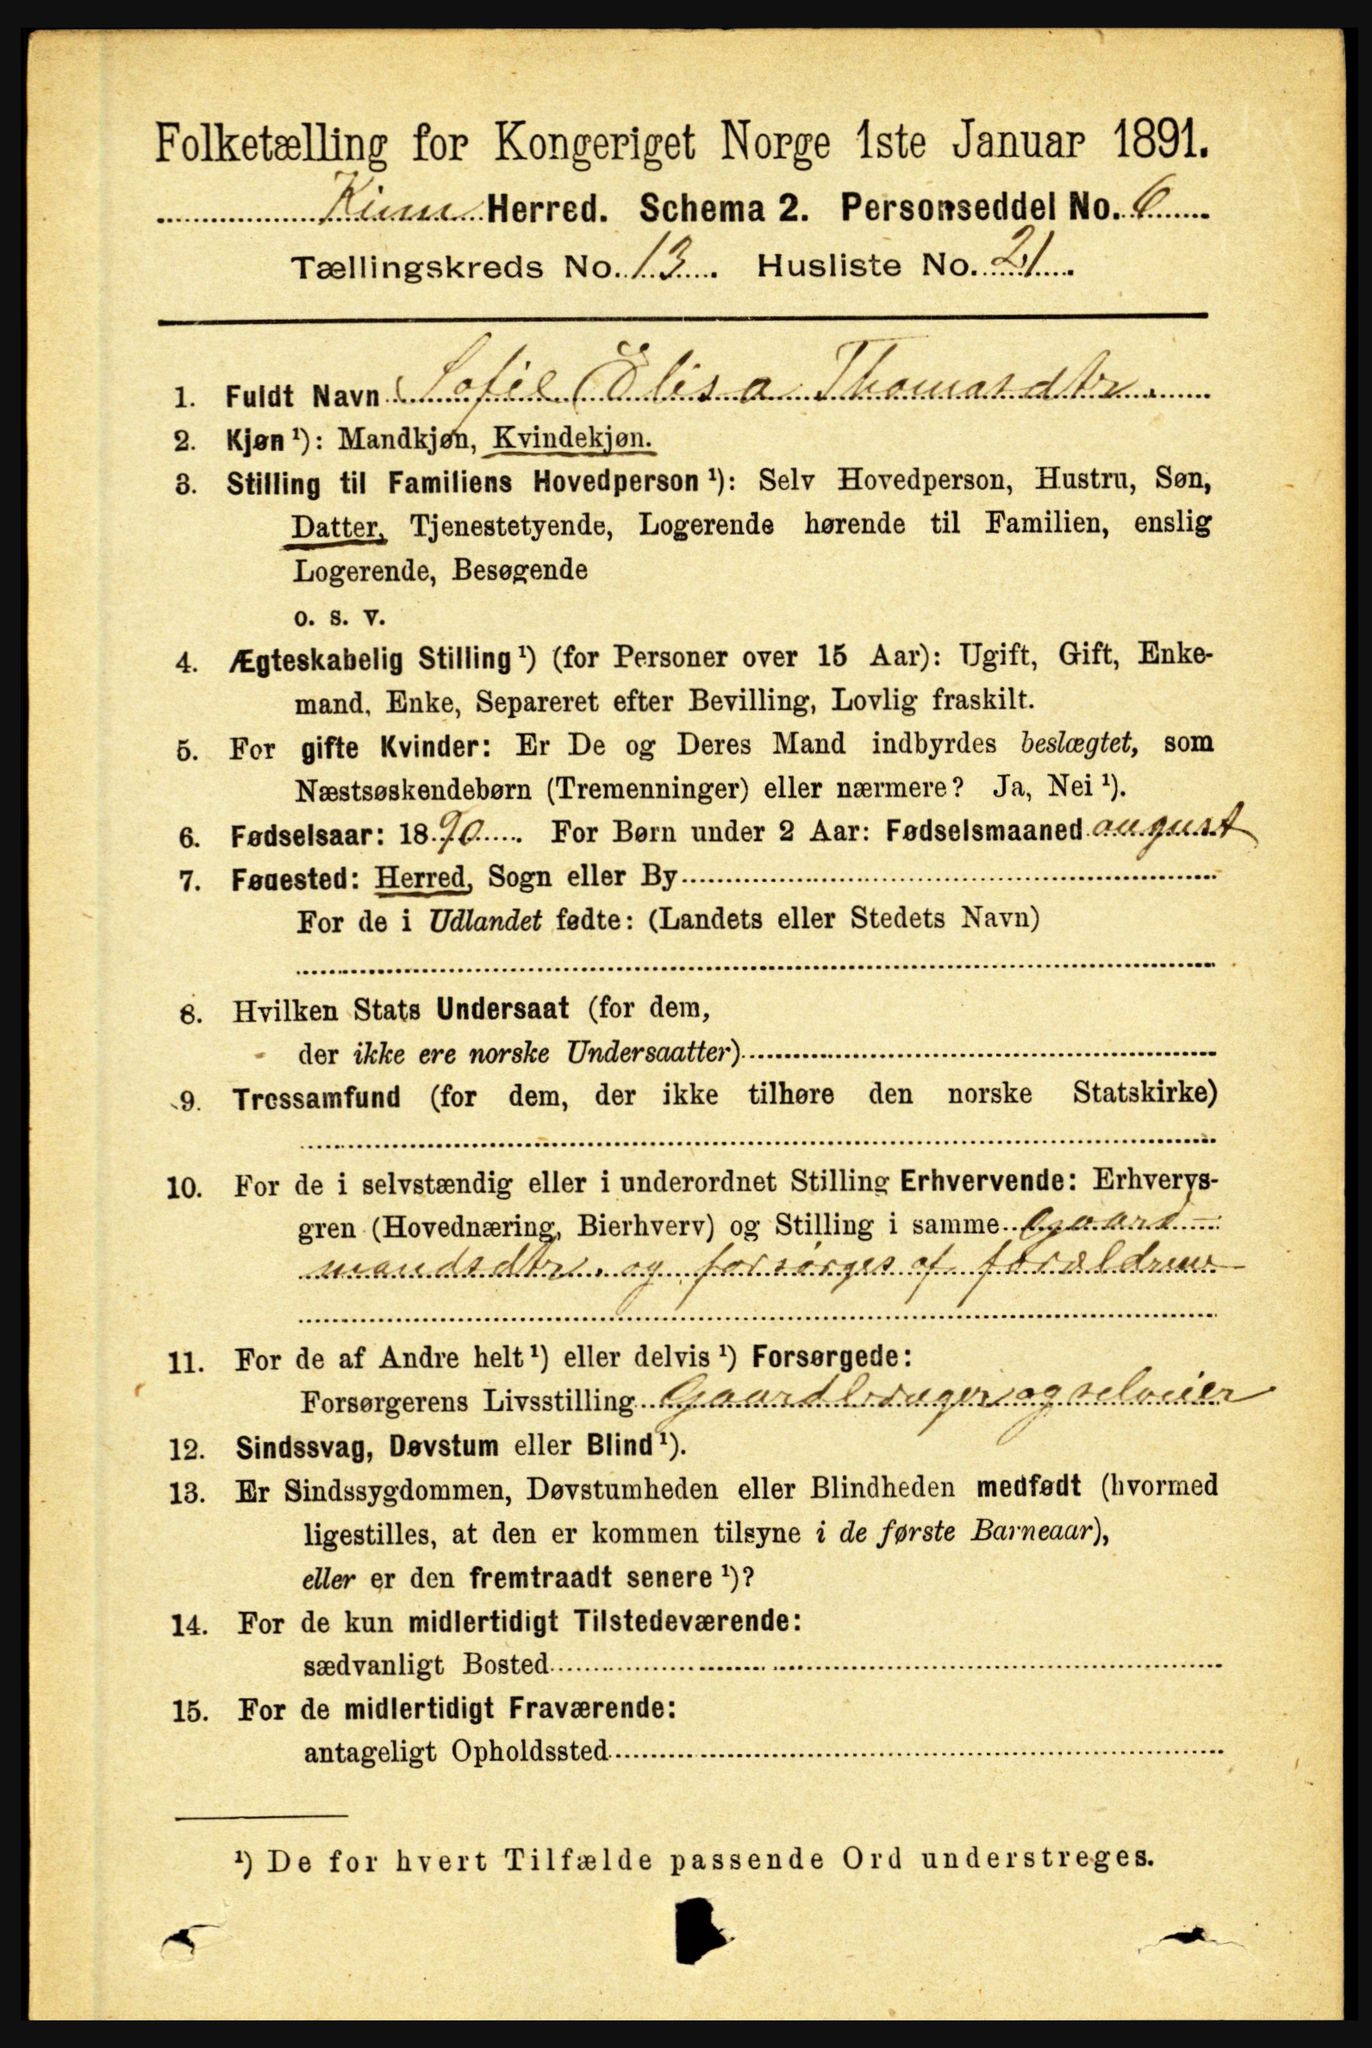 Folketælling for Kongeriget Norge 1ste Januar 1891.
Kinn Herred. Schema 2. Personseddel No. 6
Tællingskreds No. 13. Husliste No. 21.
1. Fuldt Navn Sofie Elisa Thomasdtr.
2. Kjøn ¹): Mandkjøn, Kvindekjøn.
3. Stilling til Familiens Hovedperson ¹): Selv Hovedperson, Hustru, Søn,
Datter, Tjenestetyende, Logerende hørende til Familien, enslig
Logerende, Besøgende
o. s. v.
4. Ægteskabelig Stilling ¹) (for Personer over 15 Aar): Ugift, Gift, Enke-
mand, Enke, Separeret efter Bevilling, Lovlig fraskilt.
5. For gifte Kvinder: Er De og Deres Mand indbyrdes beslægtet, som
Næstsøskendebørn (Tremenninger) eller nærmere? Ja, Nei ¹).
6. Fødselsaar: 1890. For Børn under 2 Aar: Fødselsmaaned august
7. Fødested: Herred, Sogn eller By
For de i Udlandet fødte: (Landets eller Stedets Navn)
8. Hvilken Stats Undersaat (for dem,
der ikke ere norske Undersaatter)
9. Trossamfund (for dem, der ikke tilhøre den norske Statskirke)
10. For de i selvstændig eller i underordnet Stilling Erhvervende: Erhvervs-
gren (Hovednæring, Bierhverv) og Stilling i samme Gaard-
mandsdtr. og forsørges af forældrene
11. For de af Andre helt ¹) eller delvis ¹) Forsørgede:
Forsørgerens Livsstilling Gaardbruger og selveier
12. Sindssvag, Døvstum eller Blind ¹).
13. Er Sindssygdommen, Døvstumheden eller Blindheden medfødt (hvormed
ligestilles, at den er kommen tilsyne i de første Barneaar),
eller er den fremtraadt senere ¹)?
14. For de kun midlertidigt Tilstedeværende:
sædvanligt Bosted
15. For de midlertidigt Fraværende:
antageligt Opholdssted
¹) De for hvert Tilfælde passende Ord understreges.